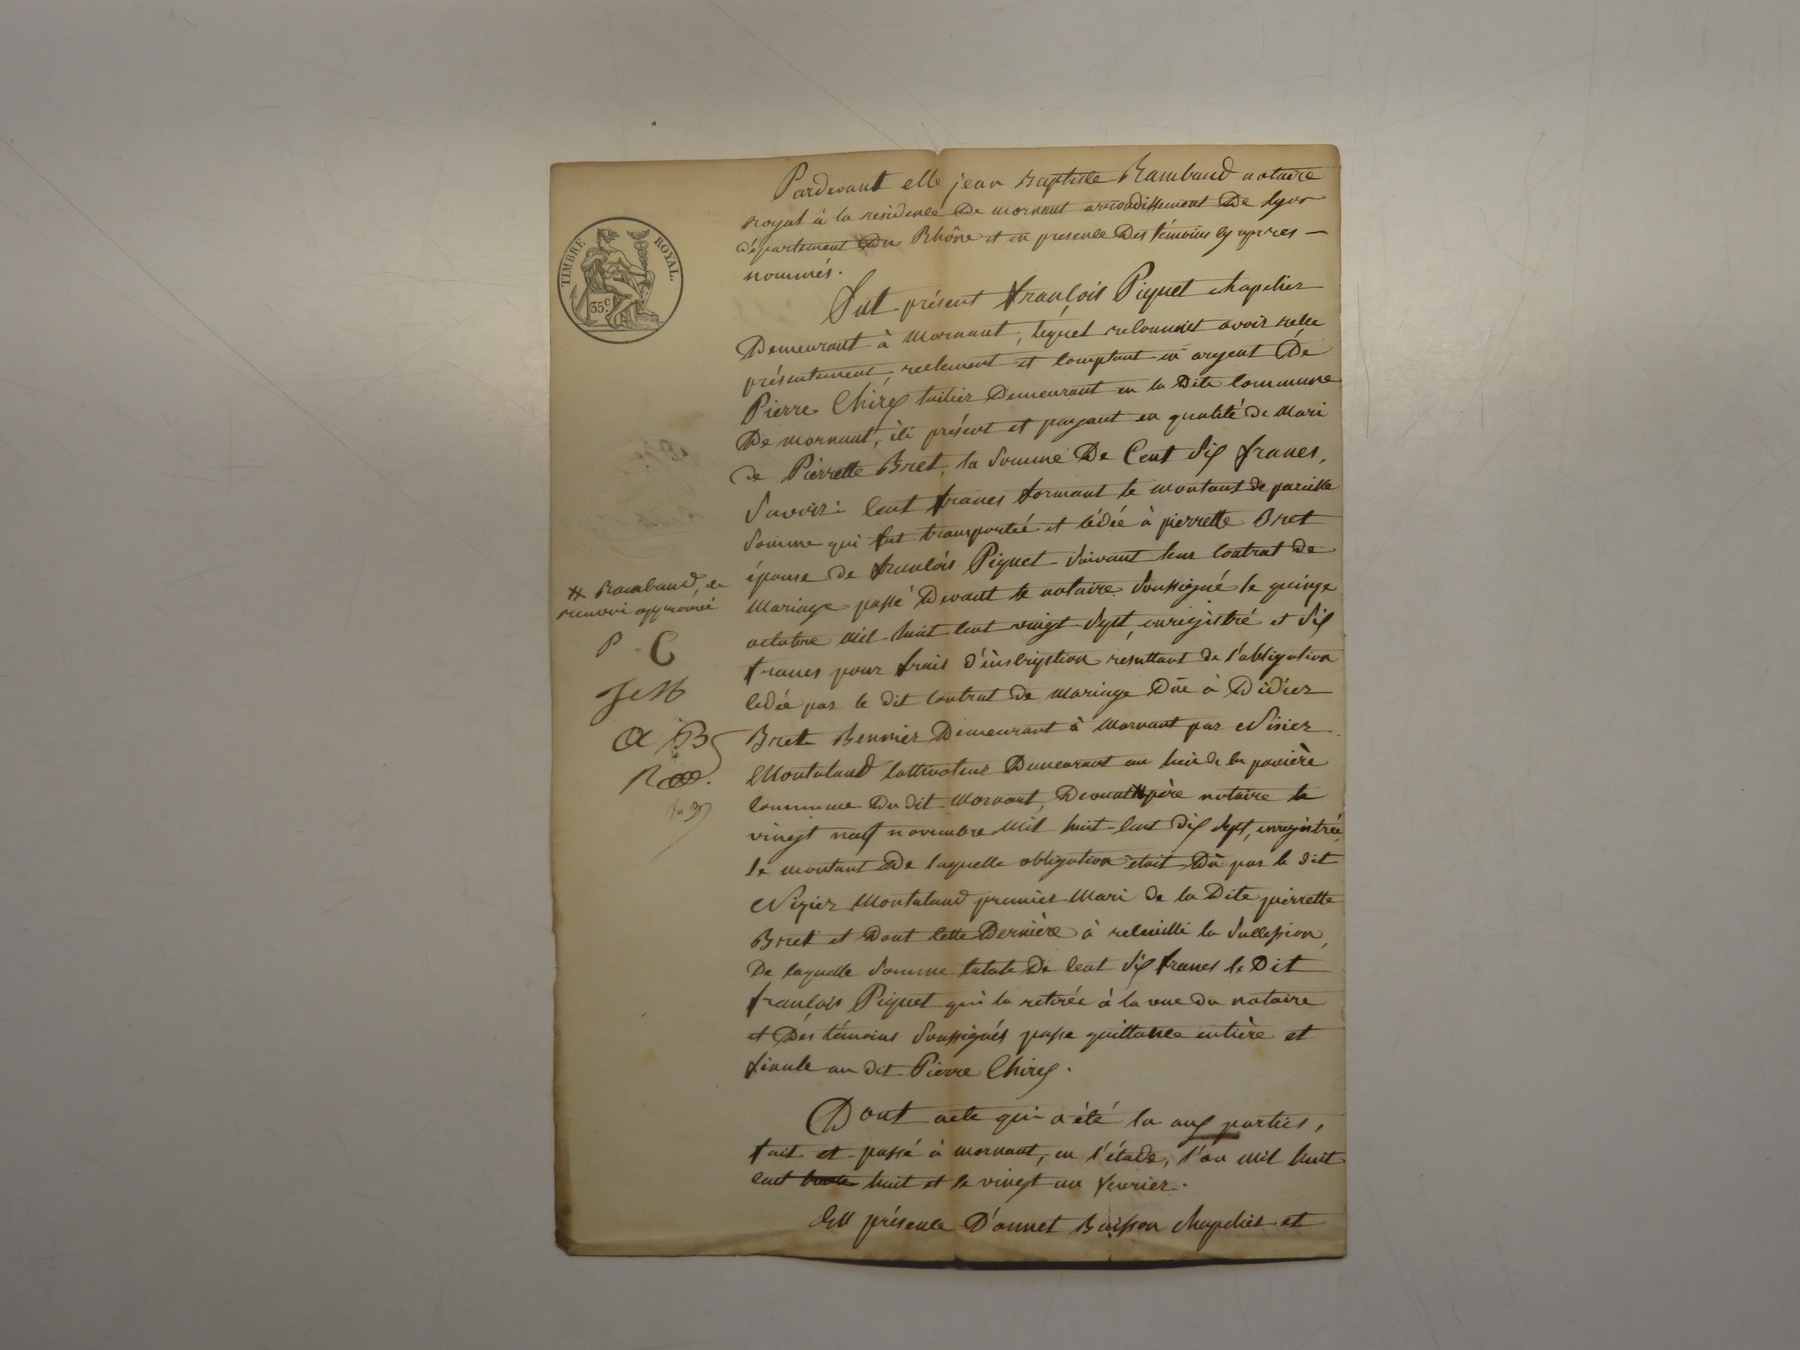 Pardevant Me jean Baptiste Rambaud notaire
royal à la residence De mornant arrondissement De lyon
département Du Rhône et en presence Des témoins cy après
nommés.
TIMBRE ROYAL.
35.c
Fut présent françois Piquet chapelier
Demeurant à Mornant, lequel reconnoit avoir reçu
présentement, reelement et comptant en argent De
Pierre Chirex tuilier Demeurant en la Dite Commune
De mornant, ici présent et payant en qualité de Mari
de Pierrette Bret, la Somme De Cent Six francs,
Savoir: Cent francs formant le montant de pareille
Somme qui fut transportée et cédée à pierrette Bret
épouse de françois Piquet Suivant leur Contrat de
Mariage passé Devant le notaire Soussigné le quinze
octobre Mil huit Cent vingt Sept, enregistré et Six
francs pour frais d'inscription resultant de l'obligation
cédée par le dit Contrat de Mariage Düe à Didier
Bret Demeurant à Mornant par Nizier
Montaland Cultivateur Demeurant au lieu de la pavière
Commune Du dit Mornant, Devant # père notaire le
vingt neuf novembre Mil huit Cent Dix Sept, enregistrée,
le montant De laquelle obligation était Dû par le dit
Nizier Montaland premier Mari de la Dite pierrette
Bret et Dont cette Dernière à recueilli la Succession,
De laquelle Somme totale De Cent Six francs le Dit
françois Piquet qui la retirée à la vue du notaire
et Des témoins Soussignés passe quittance entière et
finale au dit Pierre Chirex.
# Rambaud, le
renvoi approuvé
P. C
A B
Dont acte qui a été lu aux parties,
fait et passé à mornant, en l'étude, l'an Mil huit
cent huit et le vingt un fevrier.
En présence D'annet Buisson chapelier et